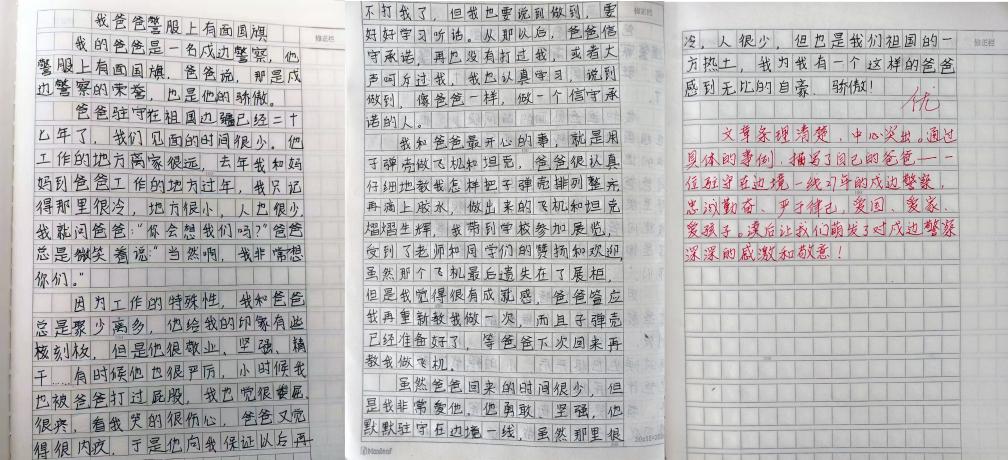 我爸爸警服上有面国旗
我的爸爸是一名戍边警察，他
警服上有面国旗，爸爸说，那是戍
边警察的荣誉，也是他的骄傲。
爸爸驻守在祖国边疆已经二十
七年了，我们见面的时间很少。他
工作的地方离家很远，去年我和妈
妈到爸爸工作的地方过年，我只记
得那里很冷，地方很小，人也很少。
我就问爸爸：“你会想我们吗？”爸爸
总是微笑着说：“当然啊，我非常想
你们。”
因为工作的特殊性，我和爸爸
总是聚少离多，他给我的印象有些
刻板，但是他很敬业、坚强、精
干……有时候他也很严厉，小时候我
也被爸爸打过屁股，我也觉很委屈，
很疼，看我哭的很伤心，爸爸又觉
得很内疚，于是他向我保证以后再
不打我了，但我也要说到做到，要
好好学习听话。从那以后，爸爸信
守承诺，再也没有打过我，或者大
声呵斥过我，我也认真学习，说到
做到，像爸爸一样，做一个信守承
诺的人。
我和爸爸最开心的事，就是用
子弹壳做飞机和坦克，爸爸很认真
仔细地教我怎样把子弹壳排列整齐
再滴上胶水，做出来的飞机和坦克
熠熠生辉，我带到学校参加展览，
受到了老师和同学们的赞扬和欢迎，
虽然那个飞机最后遗失在了展柜，
但是我觉得很有成就感，爸爸答应
我再重新教我做一次，而且子弹壳
已经准备好了，等爸爸下次回来再
教我做飞机。
虽然爸爸回来的时间很少，但
是我非常爱他，他勇敢、坚强，他
默默驻守在边境一线，虽然那里很
冷，人很少，但也是我们祖国的一
方热土，我为我有一个这样的爸爸
感到无比的自豪、骄傲！
优
文章条理清楚，中心突出。通过
具体的事例，描写了自己的爸爸——一
位驻守在边境一线27年的戍边警察，
忠诚勤奋、严于律己，爱国、爱家、
爱孩子。读后让我们萌发了对戍边警察
深深的感激和敬意！